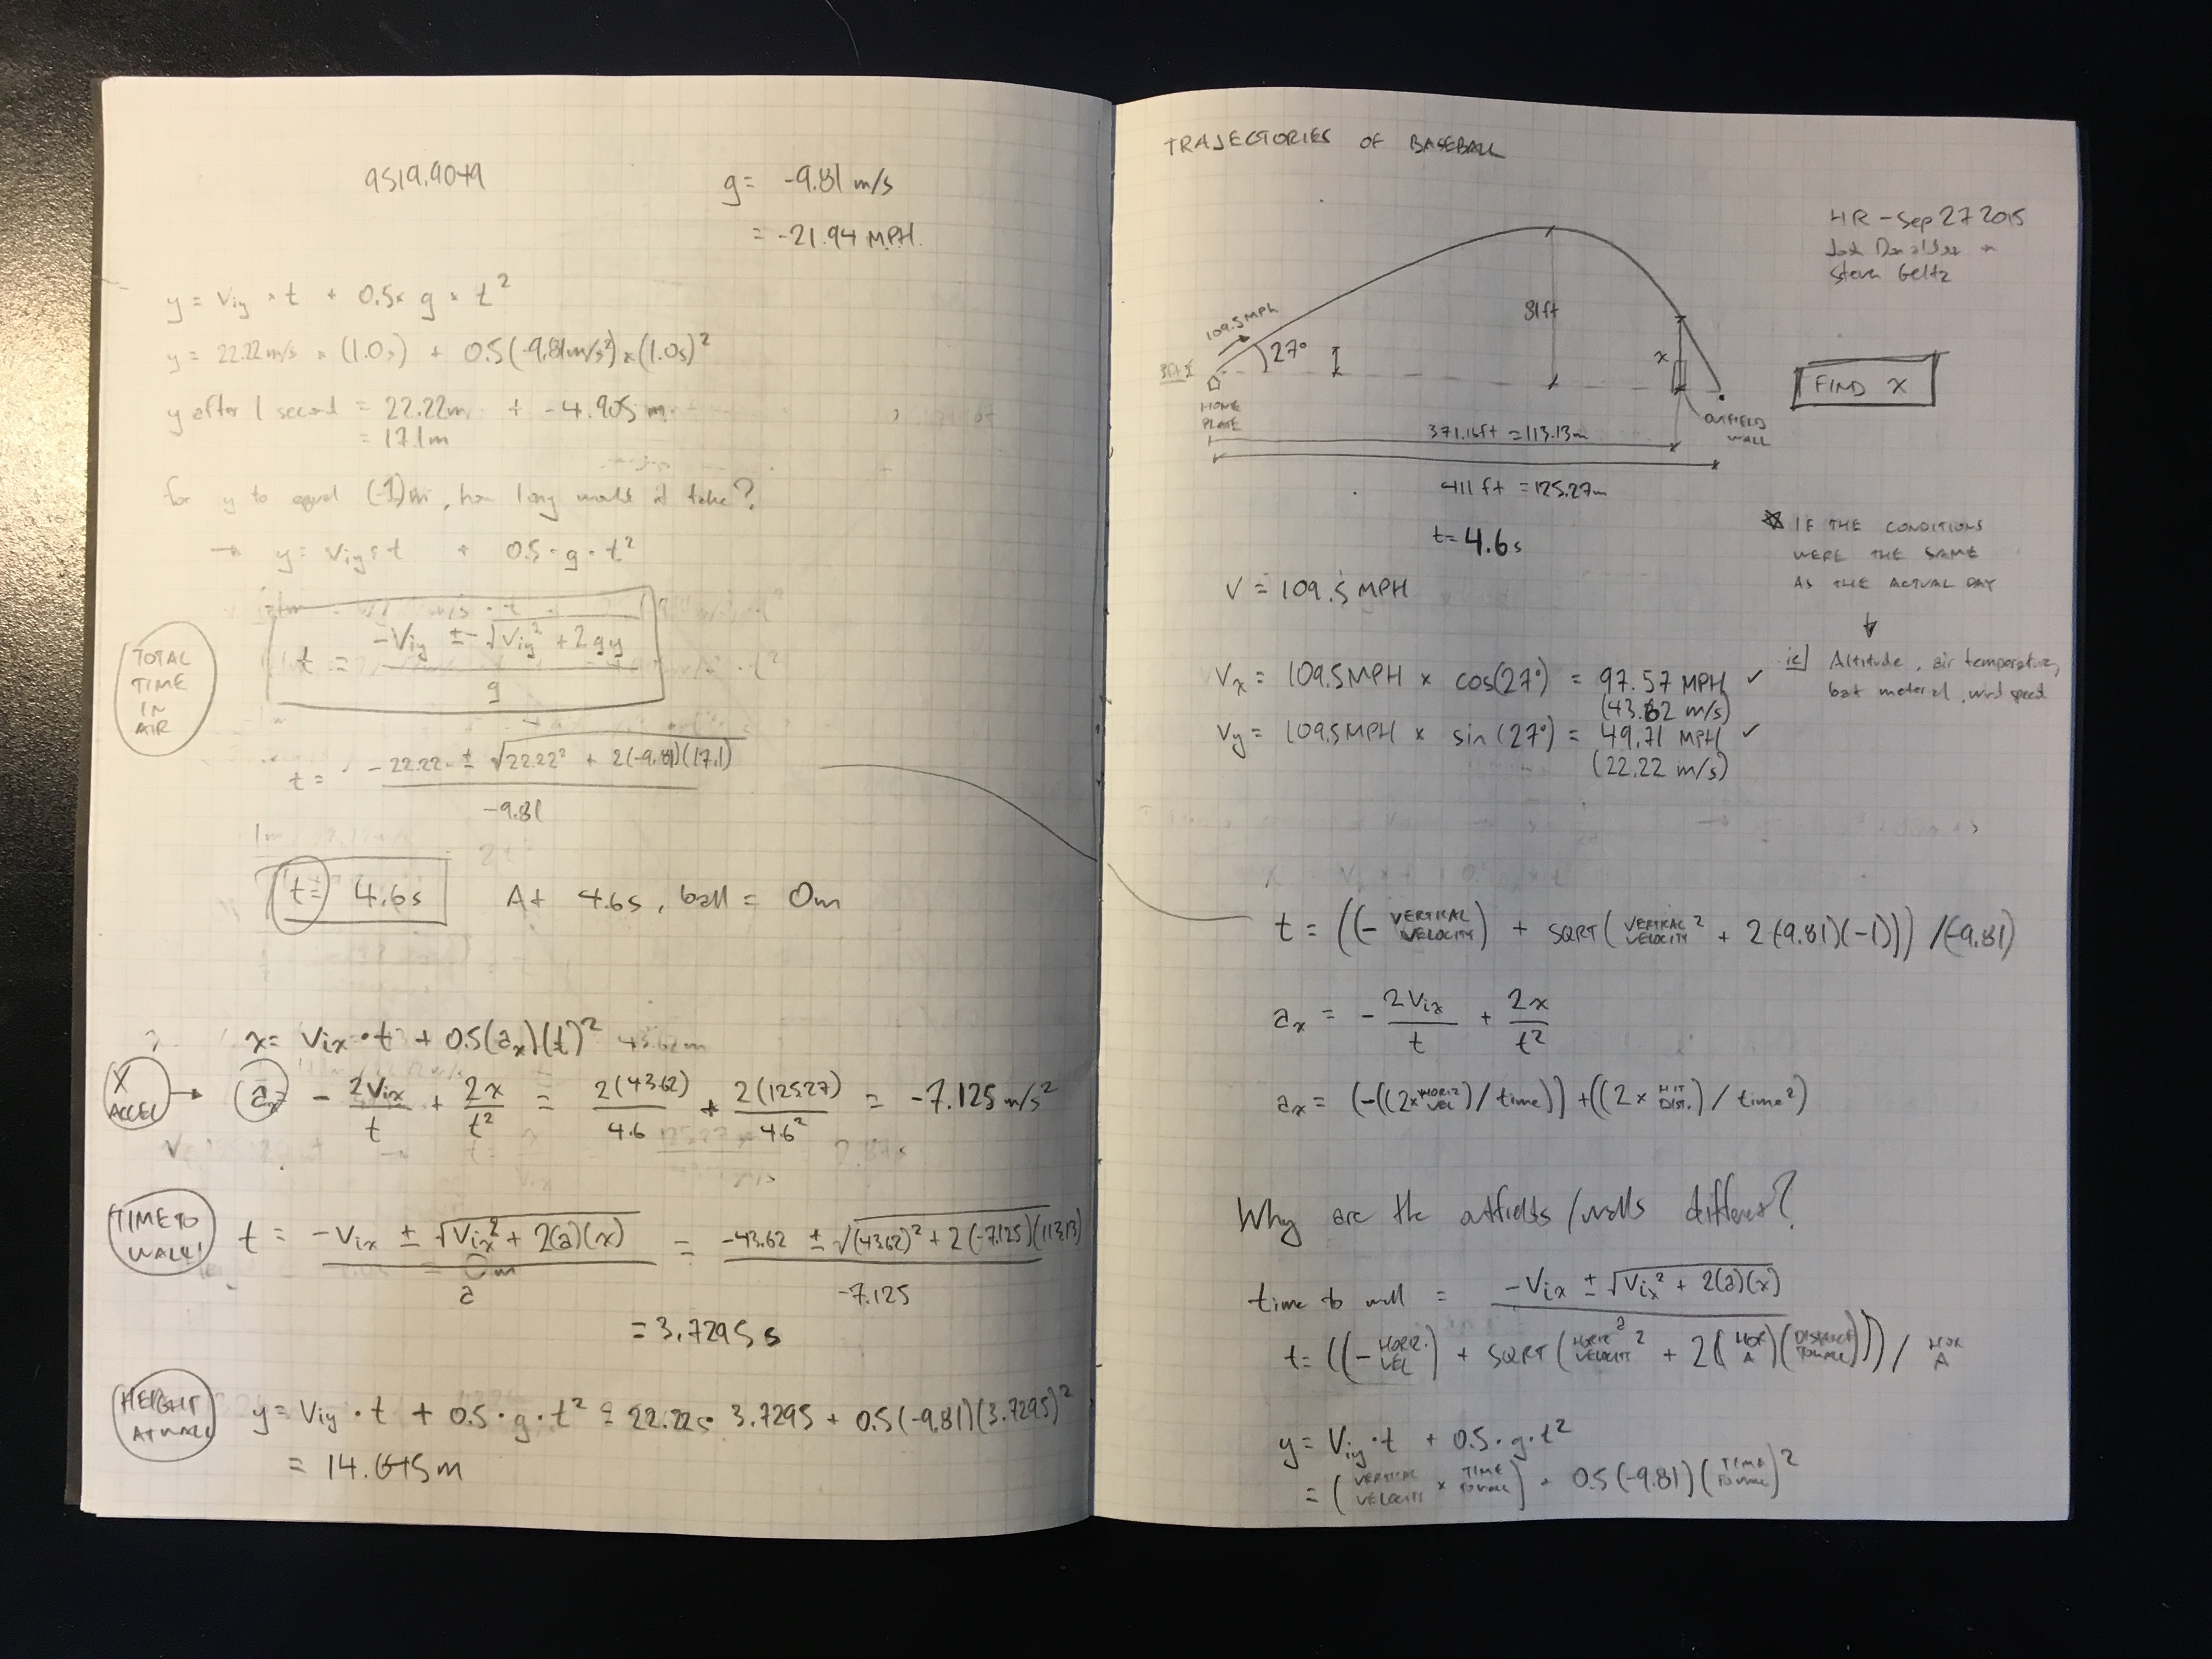 9519.9049
g = -9.81 m/s
= -21.94 MPH.
y = Viy × t + 0.5 × g × t²
y = 22.22 m/s × (1.0s) + 0.5(-9.81m/s²) × (1.0s)²
y after 1 second = 22.22m + -4.905 m
= 17.1m
for y to equal (-1)m, how long would it take?
→ y = Viy · t + 0.5 · g · t²
TOTAL
TIME
IN
AIR
t = -Viy ± √Viy² + 2gy
g
t = -22.22 ± √22.22² + 2(-9.81)(17.1)
-9.81
t = 4.6s At 4.6s, ball = 0m
x = Vix · t + 0.5(ax)(t)²
X
ACCEL → ax - 2Vix/t + 2x/t² = 2(43.62)/4.6 + 2(125.27)/4.6² = -7.125 m/s²
TIME TO
WALL!
t = -Vix ± √Vix² + 2(a)(x) = -43.62 ± √(43.62)² + 2(-7.125)(113.13)
a -7.125
= 3.7295 s
HEIGHT
AT WALL
y = Viy · t + 0.5 · g · t² = 22.22 · 3.7295 + 0.5(-9.81)(3.7295)²
= 14.645m
TRAJECTORIES OF BASEBALL
HR - Sep 27 2015
Steven Geltz
109.5 MPH
27°
81ft
x
3ft
HOME
PLATE
OUTFIELD
WALL
FIND X
371.16ft = 113.13m
411 ft = 125.27m
t = 4.6s
☆ IF THE CONDITIONS
WERE THE SAME
AS THE ACTUAL DAY
↓
ie] Altitude, air temperature,
bat material, wind speed
V = 109.5 MPH
Vx = 109.5MPH × cos(27°) = 97.57 MPH ✓
(43.62 m/s)
Vy = 109.5MPH × sin(27°) = 49.71 MPH ✓
(22.22 m/s)
t = ((- VERTICAL VELOCITY) + SQRT(VERTICAL VELOCITY² + 2(-9.81)(-1))) / (-9.81)
ax = - 2Vix/t + 2x/t²
ax = (-((2×HORIZ VEL)/time)) + ((2× HIT DIST.)/time²)
Why are the outfields/walls different?
time to wall = -Vix ± √Vix² + 2(a)(x)
a
t = ((- HORIZ. VEL) + SQRT(HORIZ VELOCITY² + 2(HOR A)(DISTANCE TO WALL))) / HOR A
y = Viy · t + 0.5 · g · t²
= (VERTICAL VELOCITY × TIME TO WALL) + 0.5(-9.81)(TIME TO WALL)²